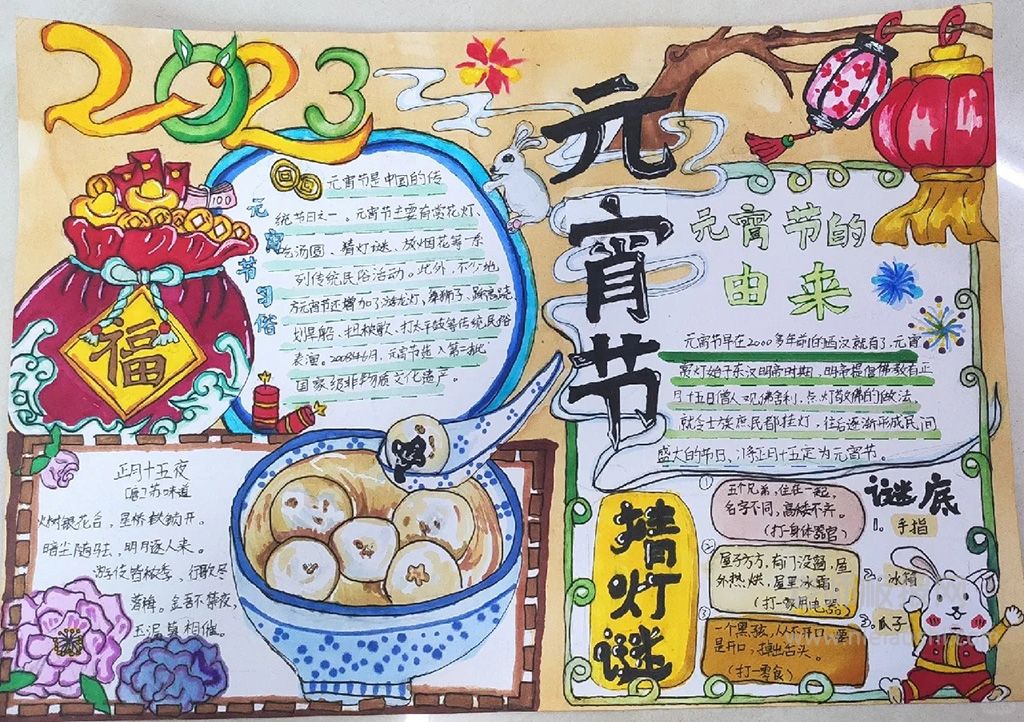 2023
元宵节
元宵节习俗
元宵节是中国的传
统节日之一。元宵节主要有赏花灯、
吃汤圆、猜灯谜、放烟花等一系
列传统民俗活动。此外，不少地
方元宵节还增加了游龙灯、舞狮子、踩高跷、
划旱船、扭秧歌、打太平鼓等传统民俗
表演。2008年6月，元宵节选入第二批
国家级非物质文化遗产。
福
100
元宵节的
由来
元宵节早在2000多年前的西汉就有了，元宵
赏灯始于东汉明帝时期，明帝提倡佛教有正
月十五日僧人观佛舍利，点灯敬佛的做法，
就令士族庶民都挂灯，往后逐渐形成民间
盛大的节日、将正月十五定为元宵节。
正月十五夜
[唐]苏味道
火树银花合，星桥铁锁开。
暗尘随马去，明月逐人来。
游伎皆秾李，行歌尽
落梅。金吾不禁夜，
玉漏莫相催。
猜灯谜
① 五个兄弟，住在一起，
名字不同，高矮不齐。
(打一身体器官)
② 屋子方方，有门没窗，屋
外热烘，屋里冰霜。
(打一家用电器)
③ 一个黑孩，从不开口，要
是开口，掉出舌头。
(打一零食)
谜底
1. 手指
2. 冰箱
3. 瓜子